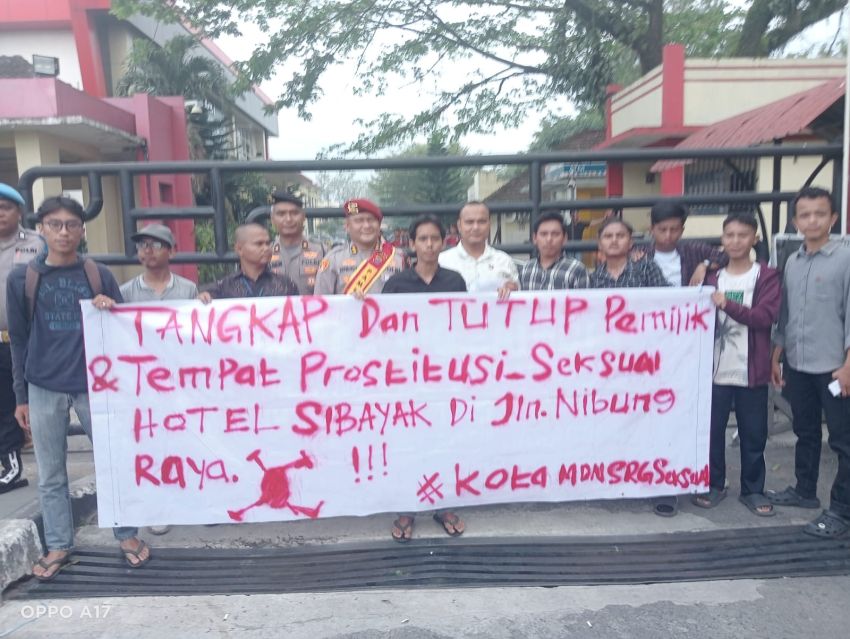 TANGKAP Dan TUTUP Pemilik
& Tempat Prostitusi_Seksual
HOTEL SIBAYAK Di Jln. Nibung
Raya. !!!
#Kota MDNSRGSeksuAl
OPPO A17